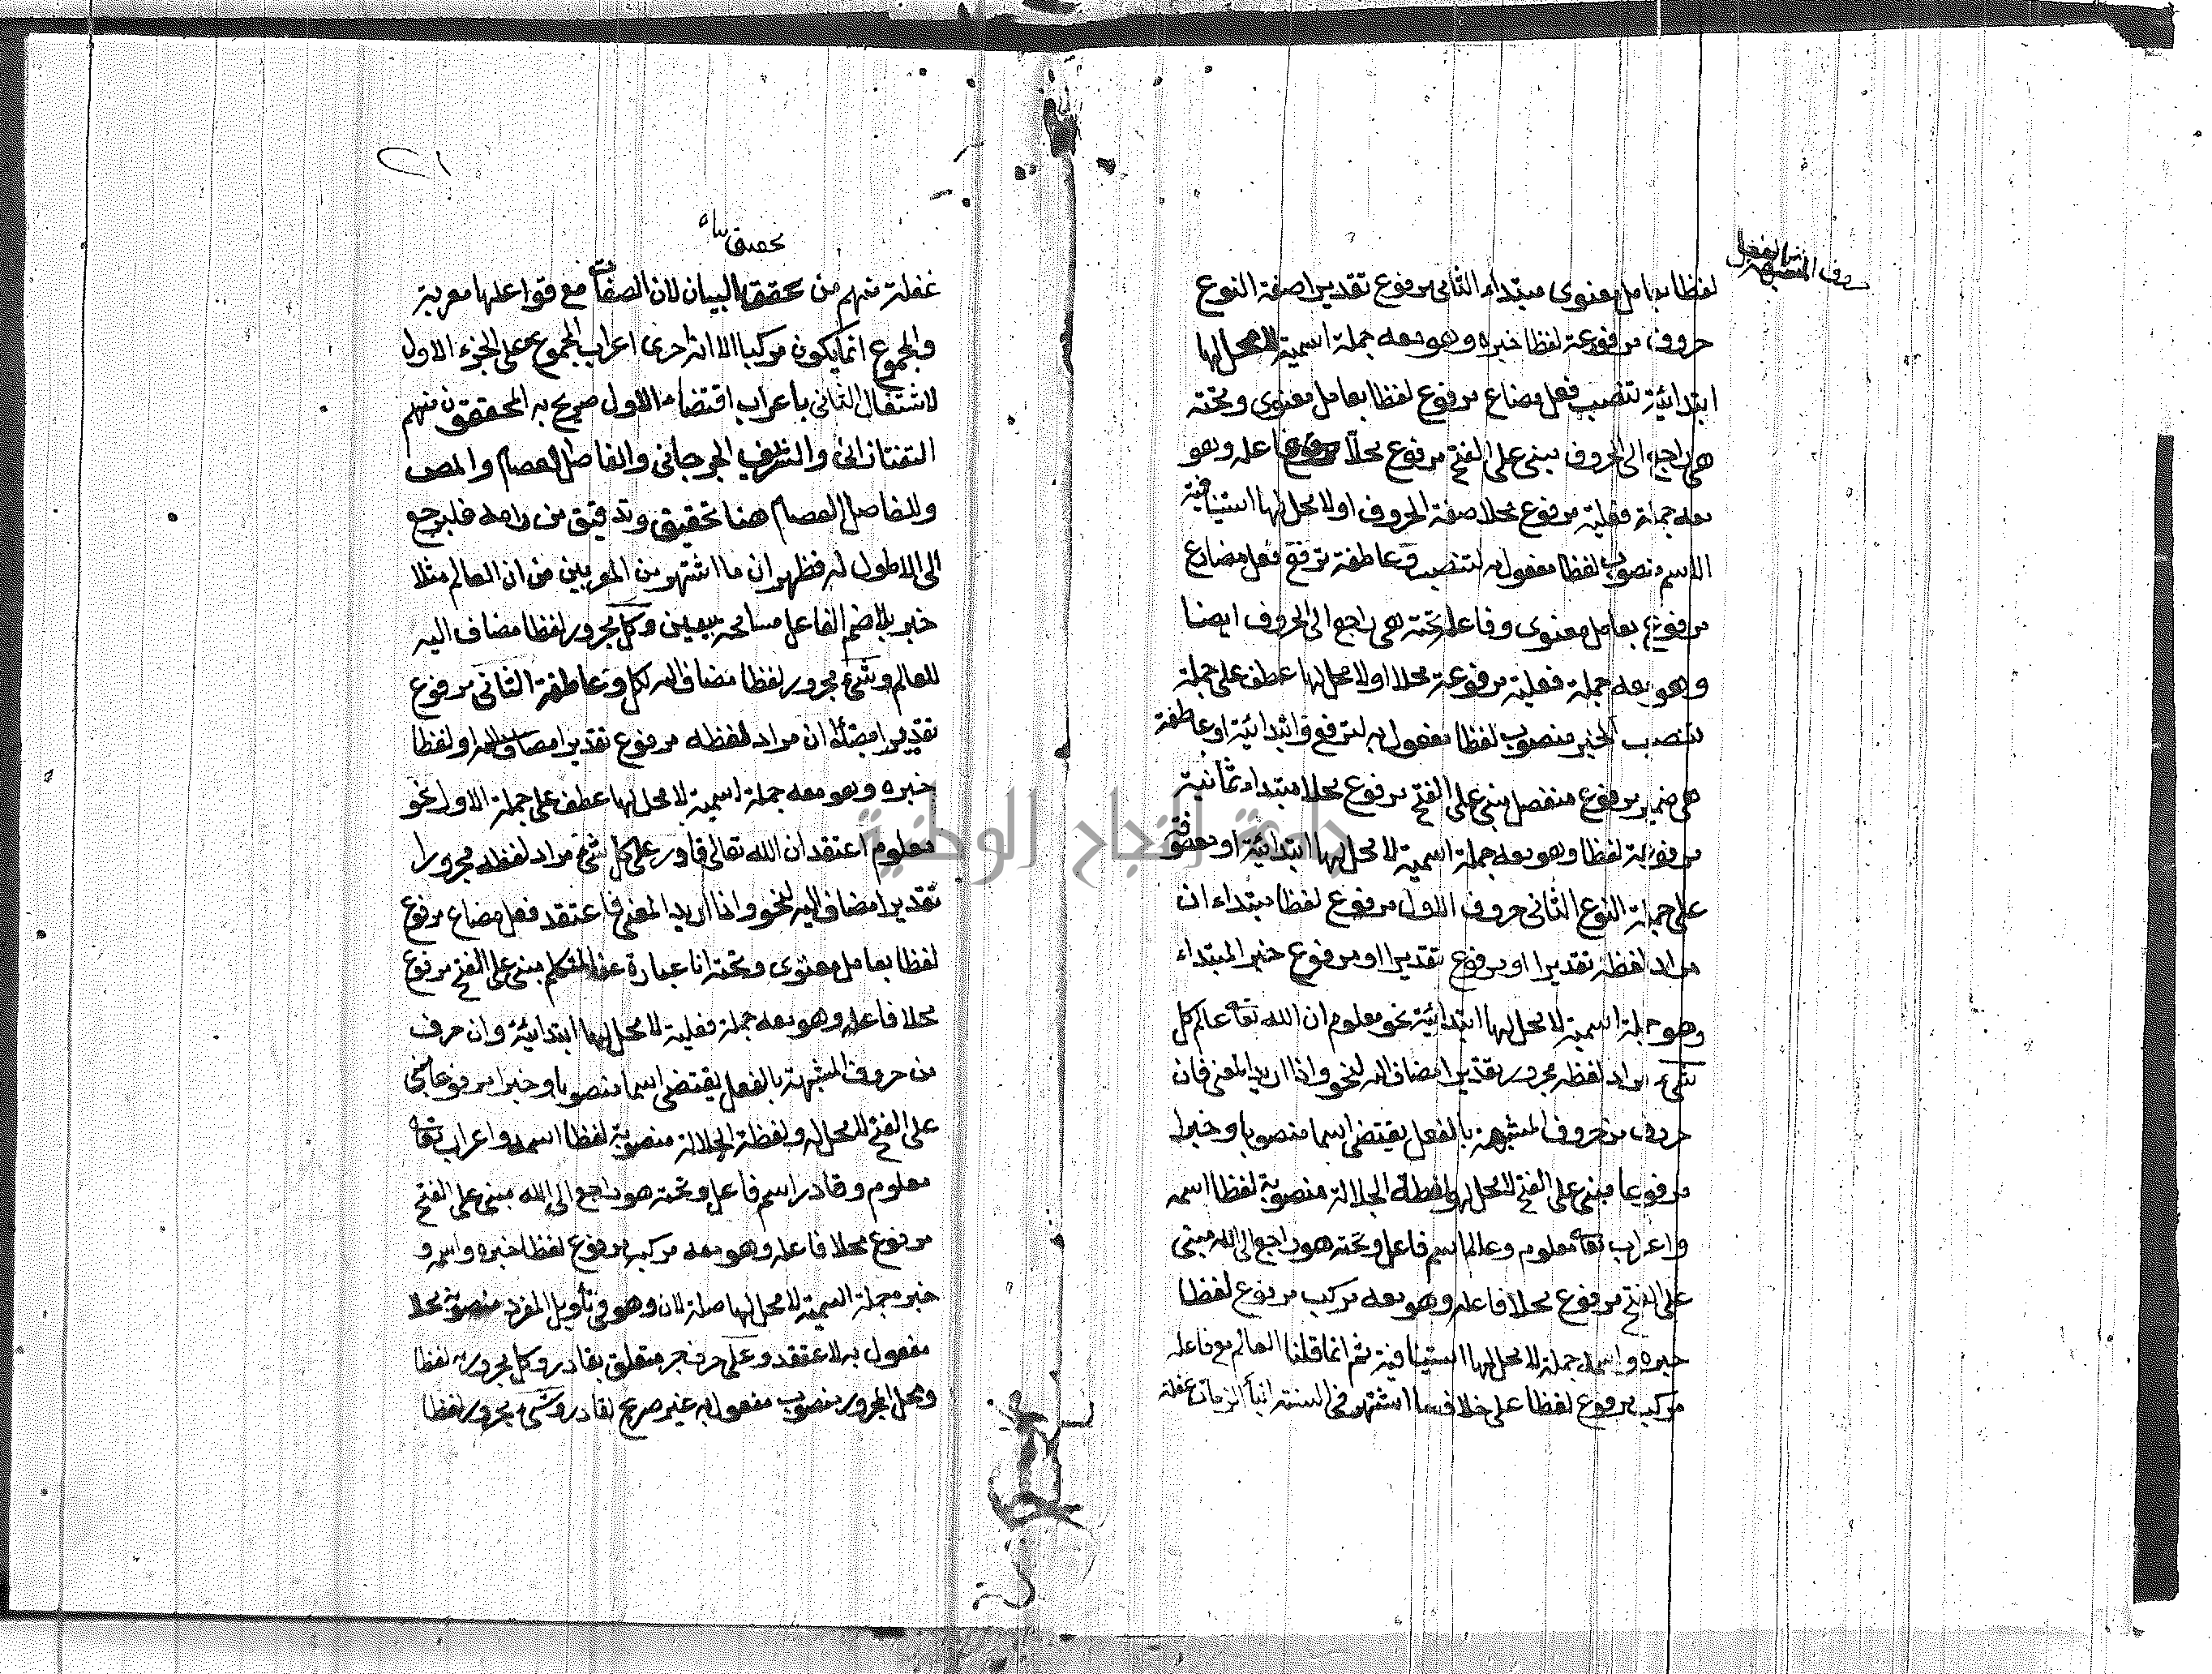 لفظا بعامل معنوى مبتداء الثانى مرفوع تقديرا صفة النوع
حروف مرفوعة لفظا خبره وهو معه جملة اسمية لا محل لها
ابتدائية تنصب فعل مضاع مرفوع لفظا بعامل معنوى وتحته
هى راجع الى الحروف مبنى على الفتح مرفوع محلا فاعله وهو
معه جملة فعلية مرفوع محلا صفة الحروف او لا محل لها استينافية
الاسم منصوب لفظا مفعول به لتنصب و عاطفة ترفع فعل مضارع
مرفوع بعامل معنوى وفاعله تحته هى راجع الى الحروف ايضا
وهو معه جملة فعلية مرفوعة محلا او لا محل لها عطف على جملة
تنصب الخبر منصوب لفظا مفعول به لترفع و ابتدائية او عاطفة
هى ضمير مرفوع منفصل مبنى على الفتح مرفوع محلا مبتداء ثمانية
مرفوعة لفظا وهو معه جملة اسمية لا محل لها ابتدائية او معطوفة
على جملة النوع الثانى حروف الاول مرفوع لفظا مبتداء ان
مراد لفظه تقديرا او مرفوع تقديرا او مرفوع خبر المبتداء
وهو جملة اسمية لا محل لها ابتدائية نحو معلوم ان الله تعا عالم كل
شىء مراد لفظه مجرور تقديرا مضاف اليه لنحو واذا اريد المعنى فان
حرف من حروف المشبهة بالفعل يقتضى اسما منصوبا وخبرا
مرفوعا مبنى على الفتح لا محل له ولفظة الجلالة منصوبة لفظا اسمه
واعراب تعا معلوم وعالم اسم فاعل وتحته هو راجع الى الله مبنى
على الفتح مرفوع محلا فاعله وهو معه مركب مرفوع لفظا
خبره واسمه جملة لا محل لها استينافية ثم انما قلنا العالم مع فاعله
مركب مرفوع لفظا على خلاف ما اشتهر فى السنة ابناء الزمان غفلة
غفلة منهم من تحقق البيان لان الصفات مع فواعلها معربة
والمجموع انما يكون مركبا الا انه اجرى اعراب المجموع على الجزء الاول
لاشتغال الثانى باعراب اقتضاه الاول صرح به المحققون منهم
التفتازانى والشريف الجرجانى والفاضل العصام والمص
وللفاضل العصام هنا تحقيق وتدقيق من رامه فليرجع
الى الاطول له فظهر ان ما اشتهر من المعربين من ان العالم مثلا
خبر بلا ضم الفاعل مسامحة بيقين وكل مجرور لفظا مضاف اليه
للعالم وشىء مجرور لفظا مضاف اليه لكل و عاطفة الثانى مرفوع
تقديرا مبتداء ان مراد لفظه مرفوع تقديرا مضاف اليه او لفظا
خبره وهو معه جملة اسمية لا محل لها عطف على جملة الاول نحو
معلوم اعتقد ان الله تعالى قادر على كل شىء مراد لفظه مجرور
تقديرا مضاف اليه لنحو واذا اريد المعنى فاعتقد فعل مضاع مرفوع
لفظا بعامل معنوى وتحته انا عبارة عن المتكلم مبنى على الفتح مرفوع
محلا فاعله وهو معه جملة فعلية لا محل لها ابتدائية وان حرف
من حروف المشبهة بالفعل يقتضى اسما منصوبا وخبرا مرفوعا مبنى
على الفتح لا محل له ولفظة الجلالة منصوبة لفظا اسمه واعراب تعا
معلوم وقادر اسم فاعل وتحته هو راجع الى الله مبنى على الفتح
مرفوع محلا فاعله وهو معه مركب مرفوع لفظا خبره واسمه و
خبره جملة اسمية لا محل لها صلة لان وهو فى تأويل المفرد منصوبة محلا
مفعول به لاعتقد وعلى حرف جر متعلق بقادر وكل مجرور به لفظا
ومحل المجرور منصوب مفعول به غير صريح لقادر وشىء مجرور لفظا
جامعة النجاح الوطنية